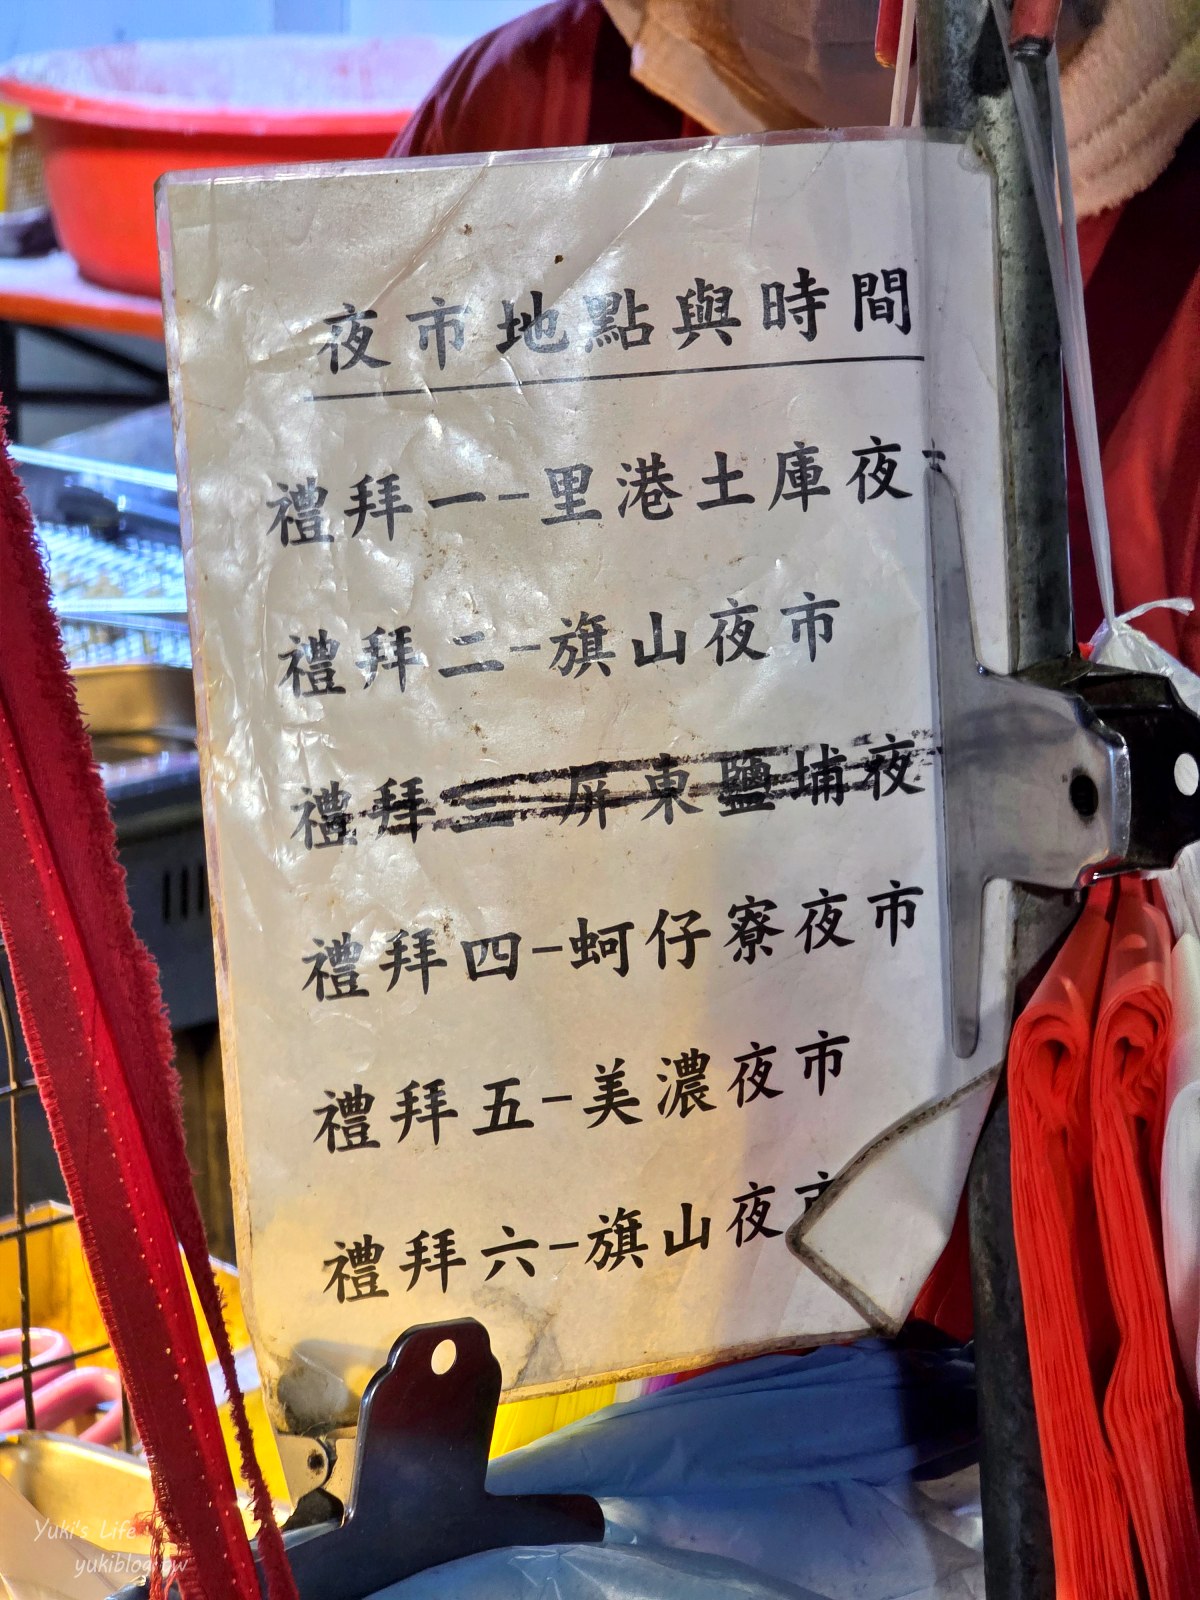 夜市地點與時間
禮拜一-里港土庫夜
禮拜二-旗山夜市
禮拜三 屏東鹽埔夜
禮拜四-蚵仔寮夜市
禮拜五-美濃夜市
禮拜六-旗山夜市
Yuki's Life
yukiblog.tw